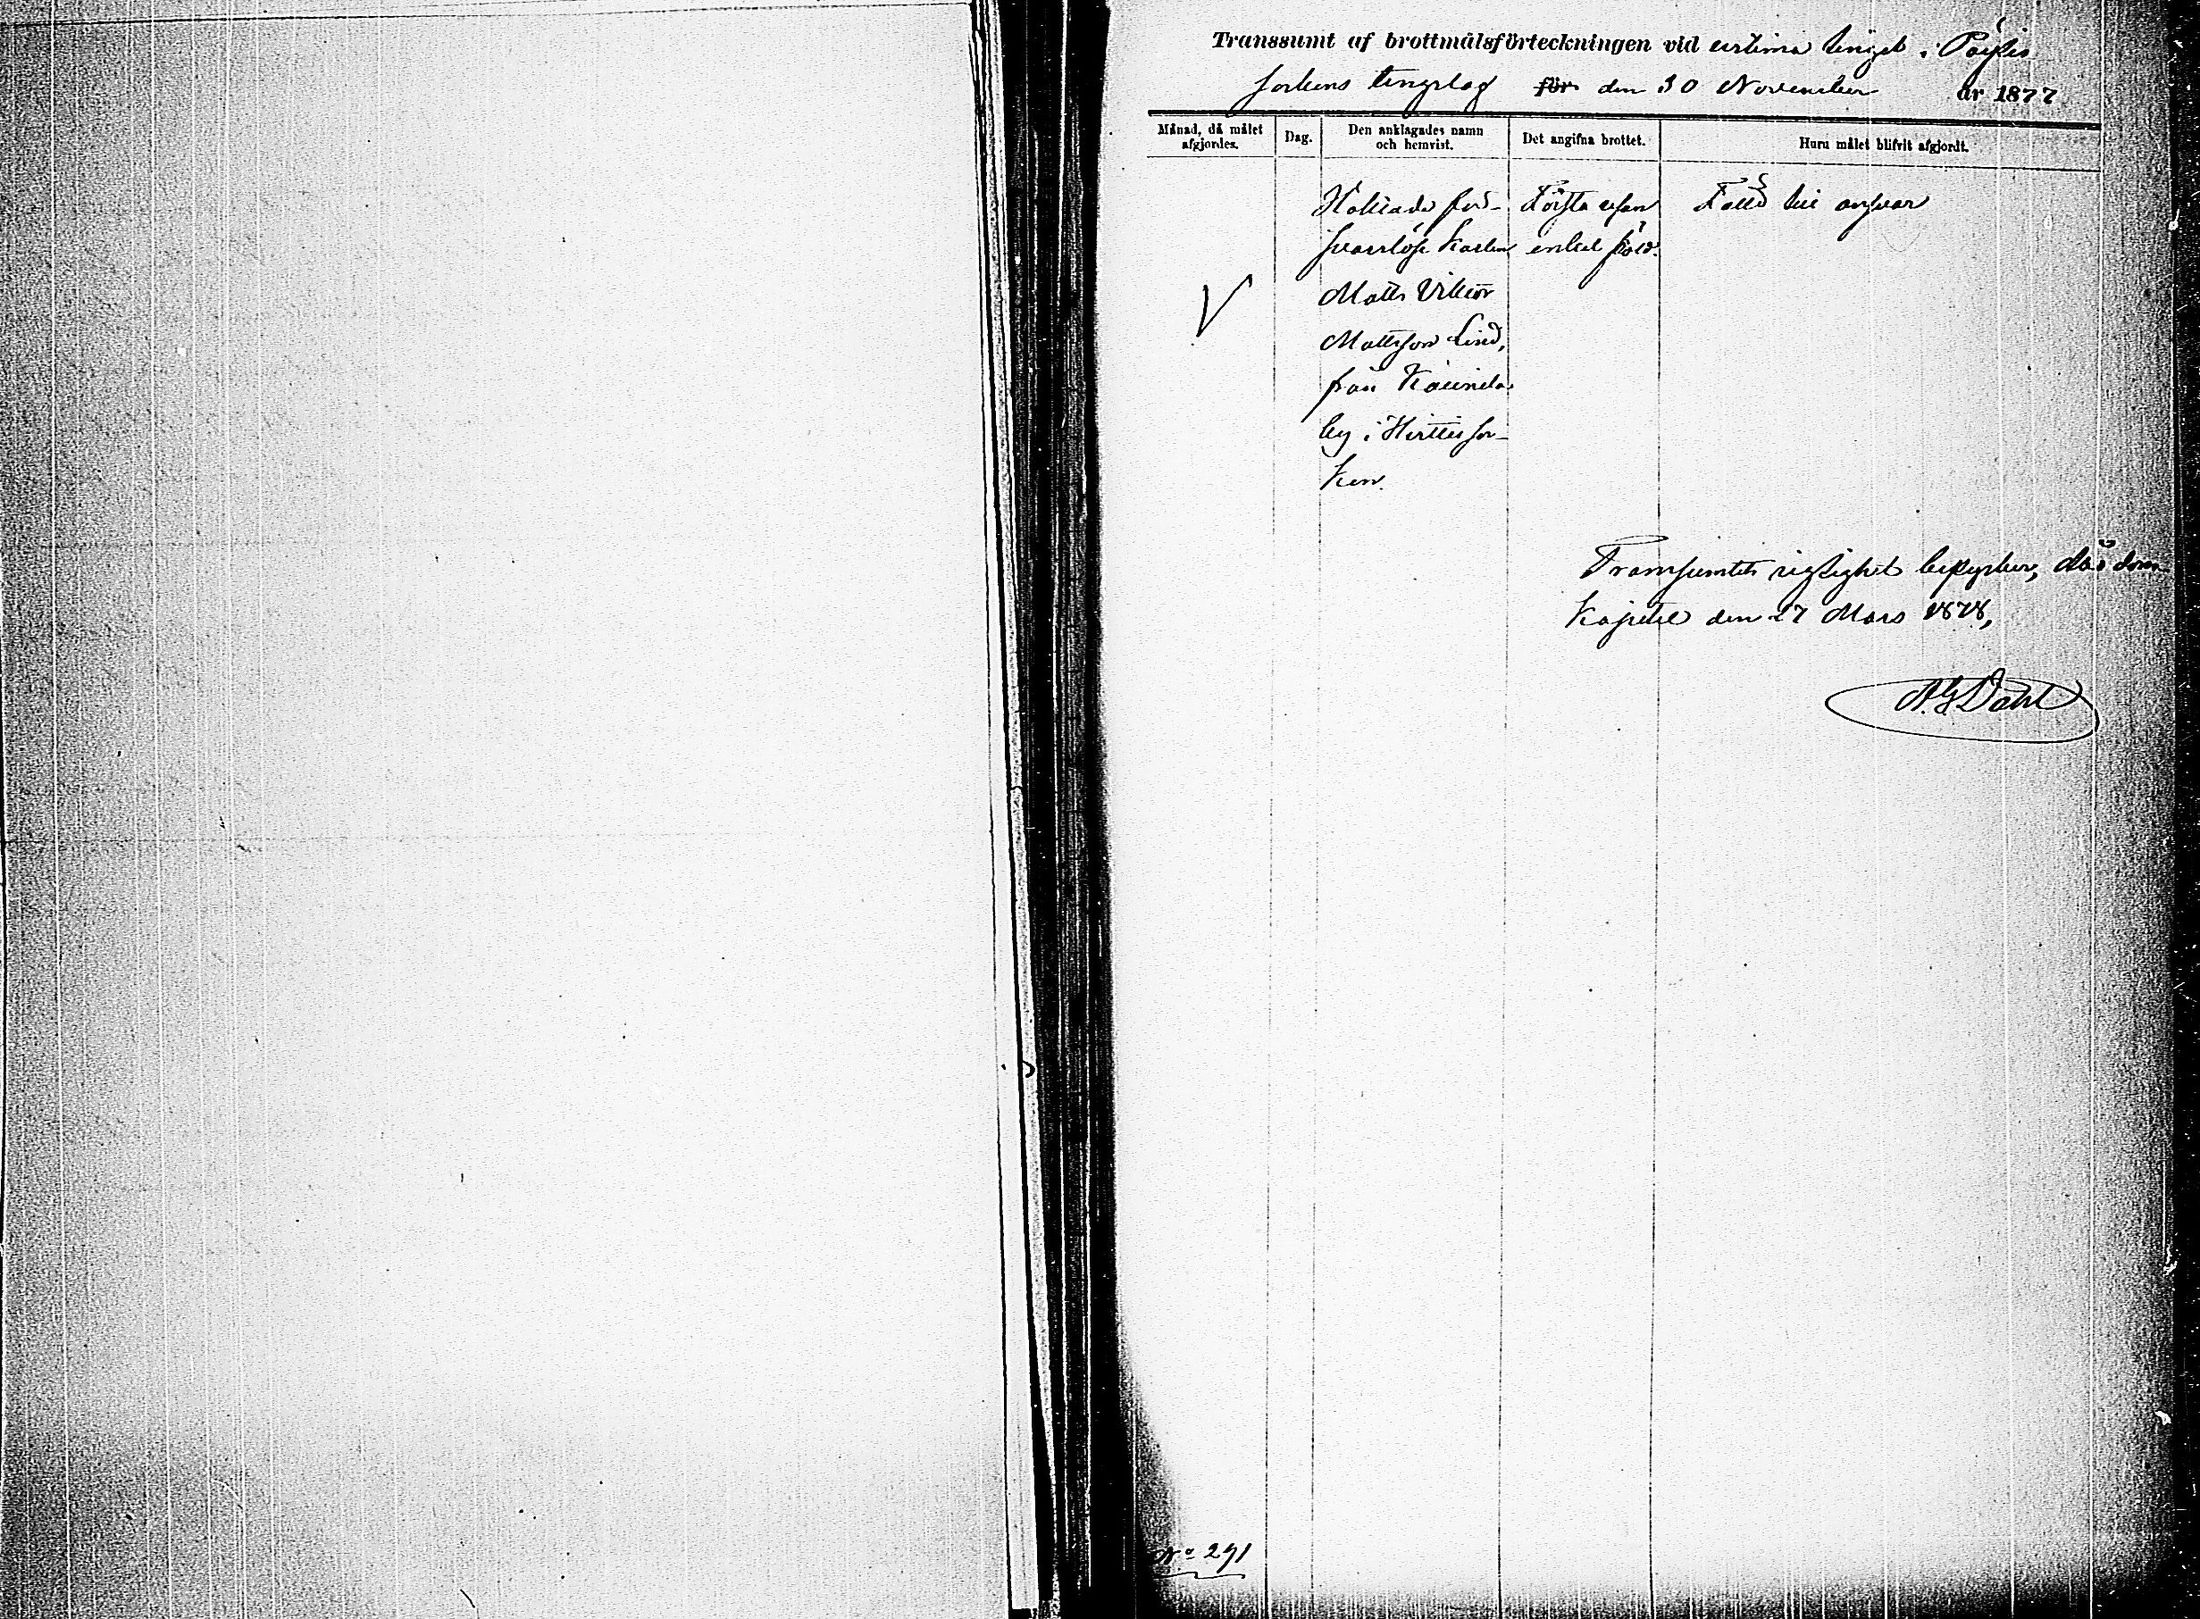 Transsumt af brottmålsförteckningen vid urtima tinget i Pöytis
sockens tingslag för den 30 November år 1877
Månad, då målet afgjordes.
Dag.
Den anklagades namn och hemvist.
Det angifna brottet.
Huru målet blifvit afgjordt.
Häktade för-
svarslöse karlen
Matts Viktor
Mattsson Lind,
från
by i
ken.
Första resan
enkel stöld.
Fälld till ansvar
Transumtets riktighet betygar,
Kapitel den 27 Mars 1878,
A. G. Dahl
No 291